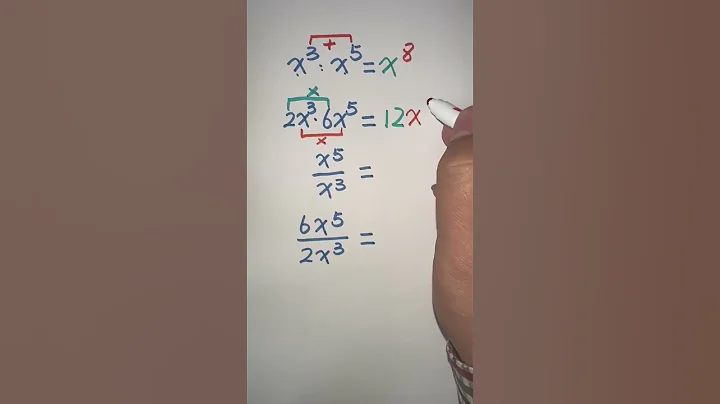 +
x³ · x⁵ = x⁸
x
2x³ · 6x⁵ = 12x
x
x⁵/x³ =
6x⁵/2x³ =